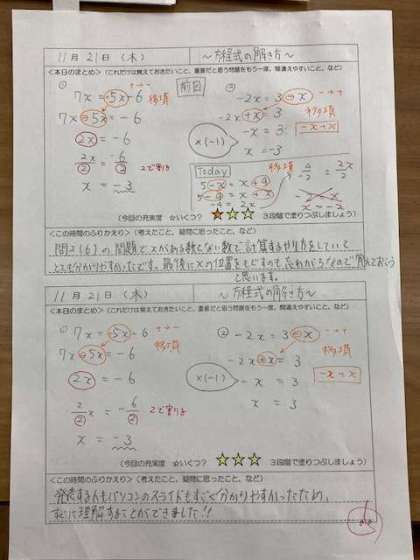 11月21日(木) ～方程式の解き方～
<本日のまとめ>(これだけは覚えておきたいこと、重要だと思う問題をもう一度、間違えやすいこと、など)
① 7x = -5x - 6 移項
7x + 5x = -6
2x = -6
2x/2 = -6/2 2で割る
x = -3
前回
② -2x = 3 - x
-2x + x = 3 移項
×(-1) -x = 3
x = -3
-x→x
Today
5 - x = x + 9 移項
5 - 9 = x + x
-4 = 2x
x = -2
(今回の充実度 ☆いくつ? ★☆☆ 3段階で塗りつぶしましょう)
<この時間のふりかえり>(考えたこと、疑問に思ったこと、など)
問2(6)の問題でxがある数とない数で計算するやり方をしていて
とても分かりやすかったです。最後にxの位置をもどすのも忘れがちなので覚えておこう
と思います。
11月21日(木) ～方程式の解き方～
<本日のまとめ>(これだけは覚えておきたいこと、重要だと思う問題をもう一度、間違えやすいこと、など)
① 7x = -5x - 6
7x + 5x 移項
2x = -6
2/2 x = -6/2 2で割る
x = -3
② -2x = 3 - x
-2x + x = 3 移項
×(-1) -x = 3
x = 3
-x→x
(今回の充実度 ☆いくつ? ☆☆☆ 3段階で塗りつぶしましょう)
<この時間のふりかえり>(考えたこと、疑問に思ったこと、など)
発表する人もパソコンのスライドもすごく分かりやすかったため、
すぐに理解することができました!!